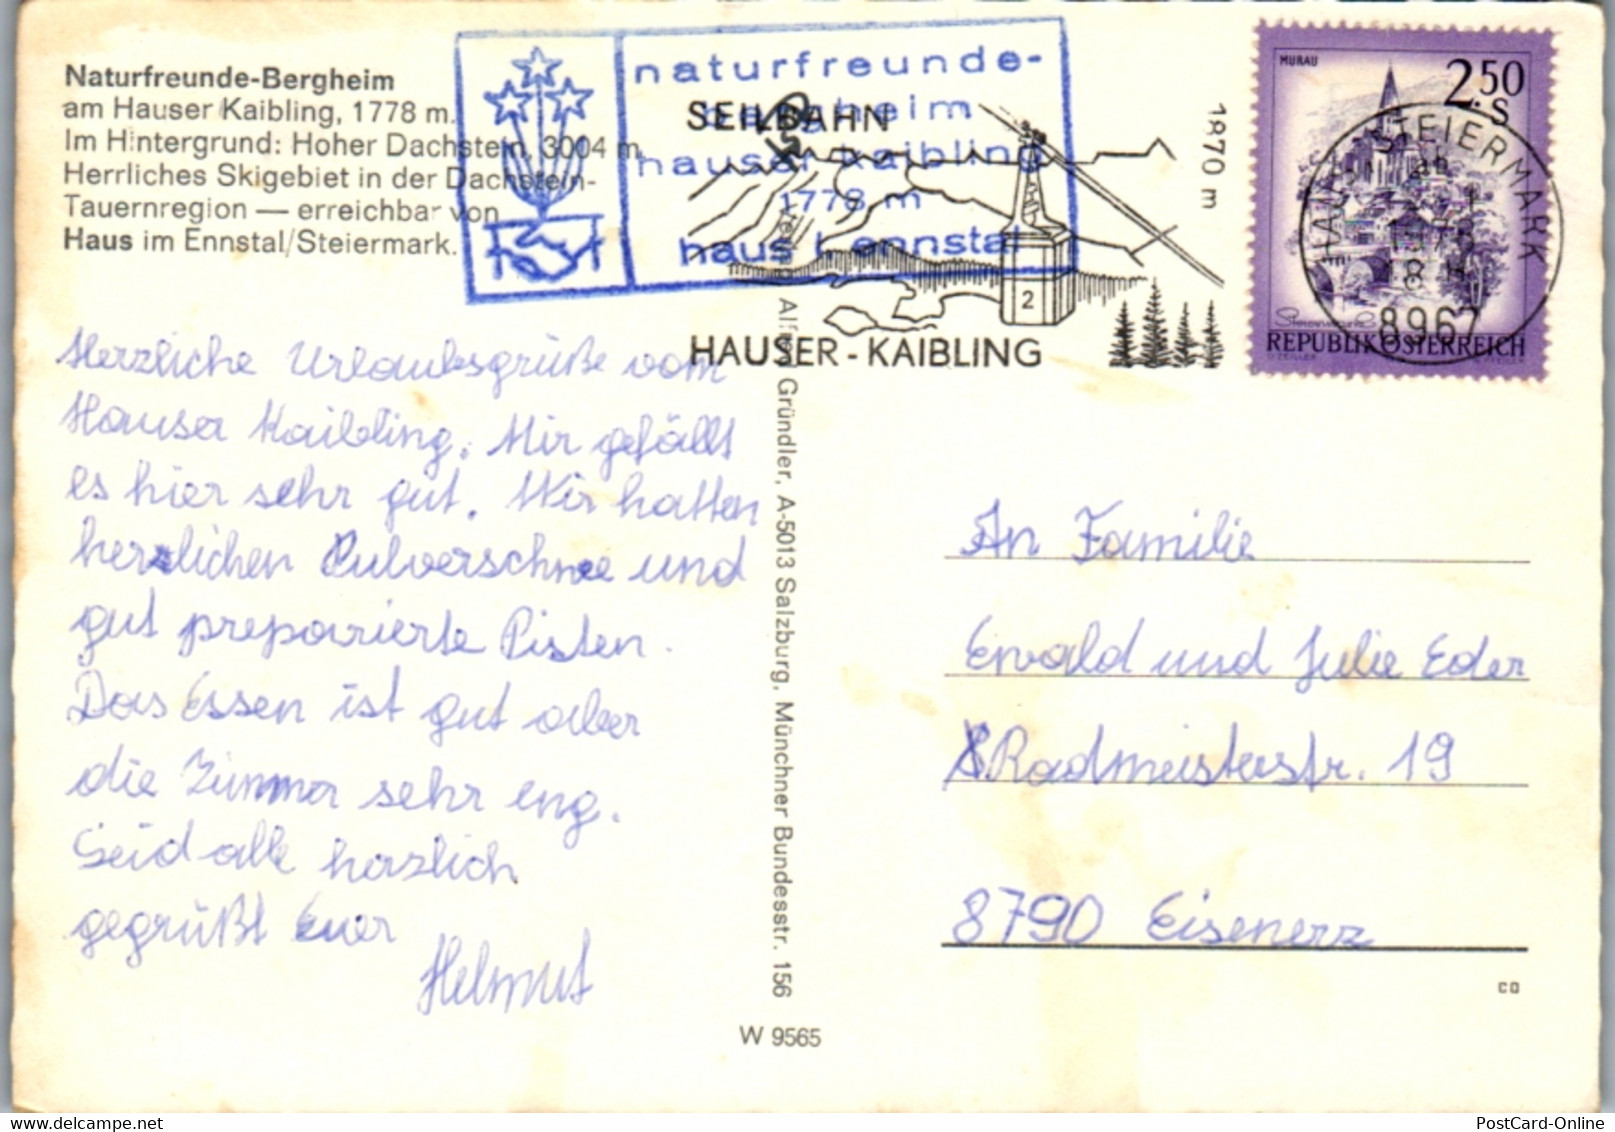 Naturfreunde-Bergheim
am Hauser Kaibling, 1778 m.
Im Hintergrund: Hoher Dachstein, 3004 m.
Herrliches Skigebiet in der Dachstein-
Tauernregion — erreichbar von
Haus im Ennstal/Steiermark.
naturfreunde-
bergheim
hauser kaibling
1778 m
haus i. ennstal
SEILBAHN
1870 m
2
HAUSER-KAIBLING
MURAU
2.50
S
REPUBLIK ÖSTERREICH
STEIERMARK
8967
Herzliche Urlaubsgrüße vom
Hauser Kaibling. Mir gefällt
es hier sehr gut. Wir hatten
herzlichen Pulverschnee und
gut preparierte Pisten.
Das Essen ist gut aber
die Zimmer sehr eng.
Seid alle herzlich
gegrüßt Euer
Helmut
Verlag Alfred Gründler, A-5013 Salzburg, Münchner Bundesstr. 156
W 9565
An Familie
Ewald und Julie Eder
Radmeisterstr. 19
8790 Eisenerz
CO
PostCard-Online